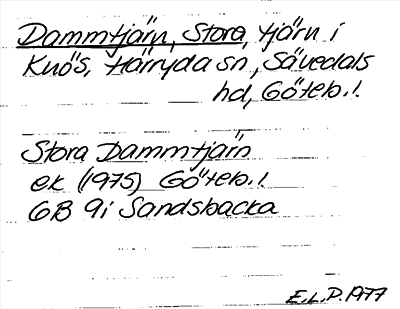 Dammtjärn, Stora, tjärn i
Knös, Härryda sn, Sävedals
hd, Göteb.l.
Stora Dammtjärn
ek (1975) Göteb.l.
6B 9i Sandsbacka
E.L.P. 1977